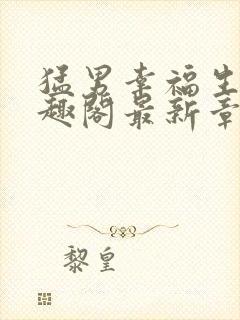 猛男幸福生
趣阁最新章
黎皇